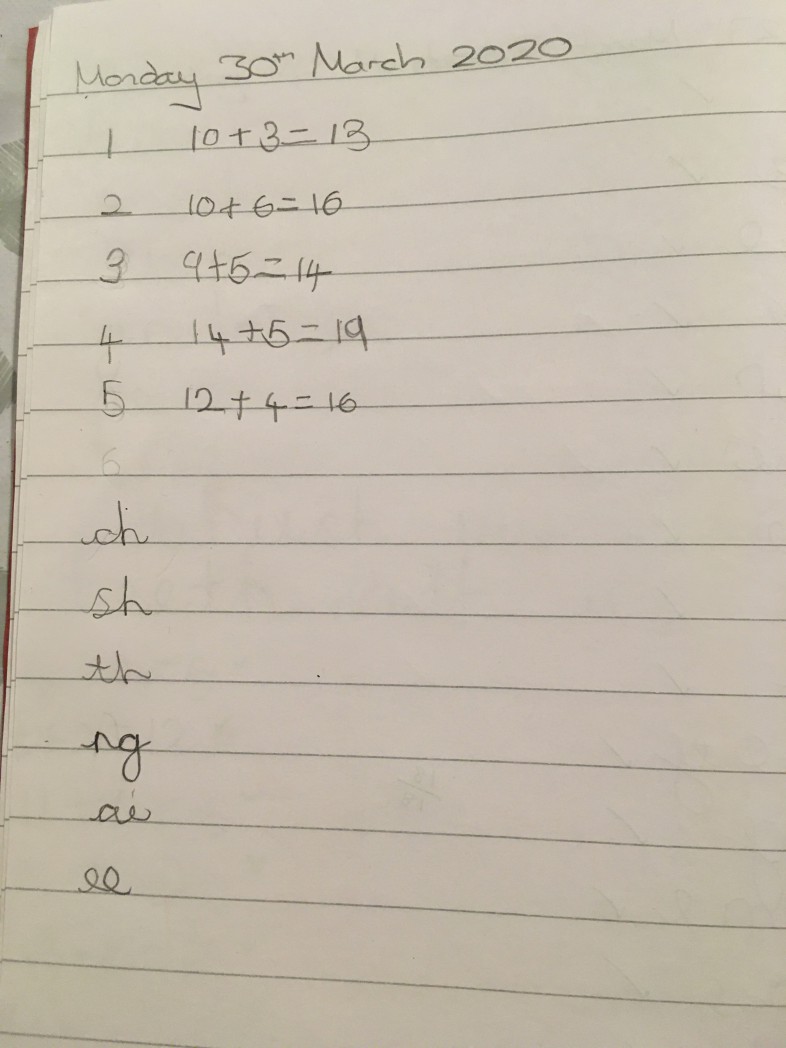 Monday 30th March 2020
1 10+3=13
2 10+6=16
3 9+5=14
4 14+5=19
5 12+4=16
6
ch
sh
th
ng
ai
ee